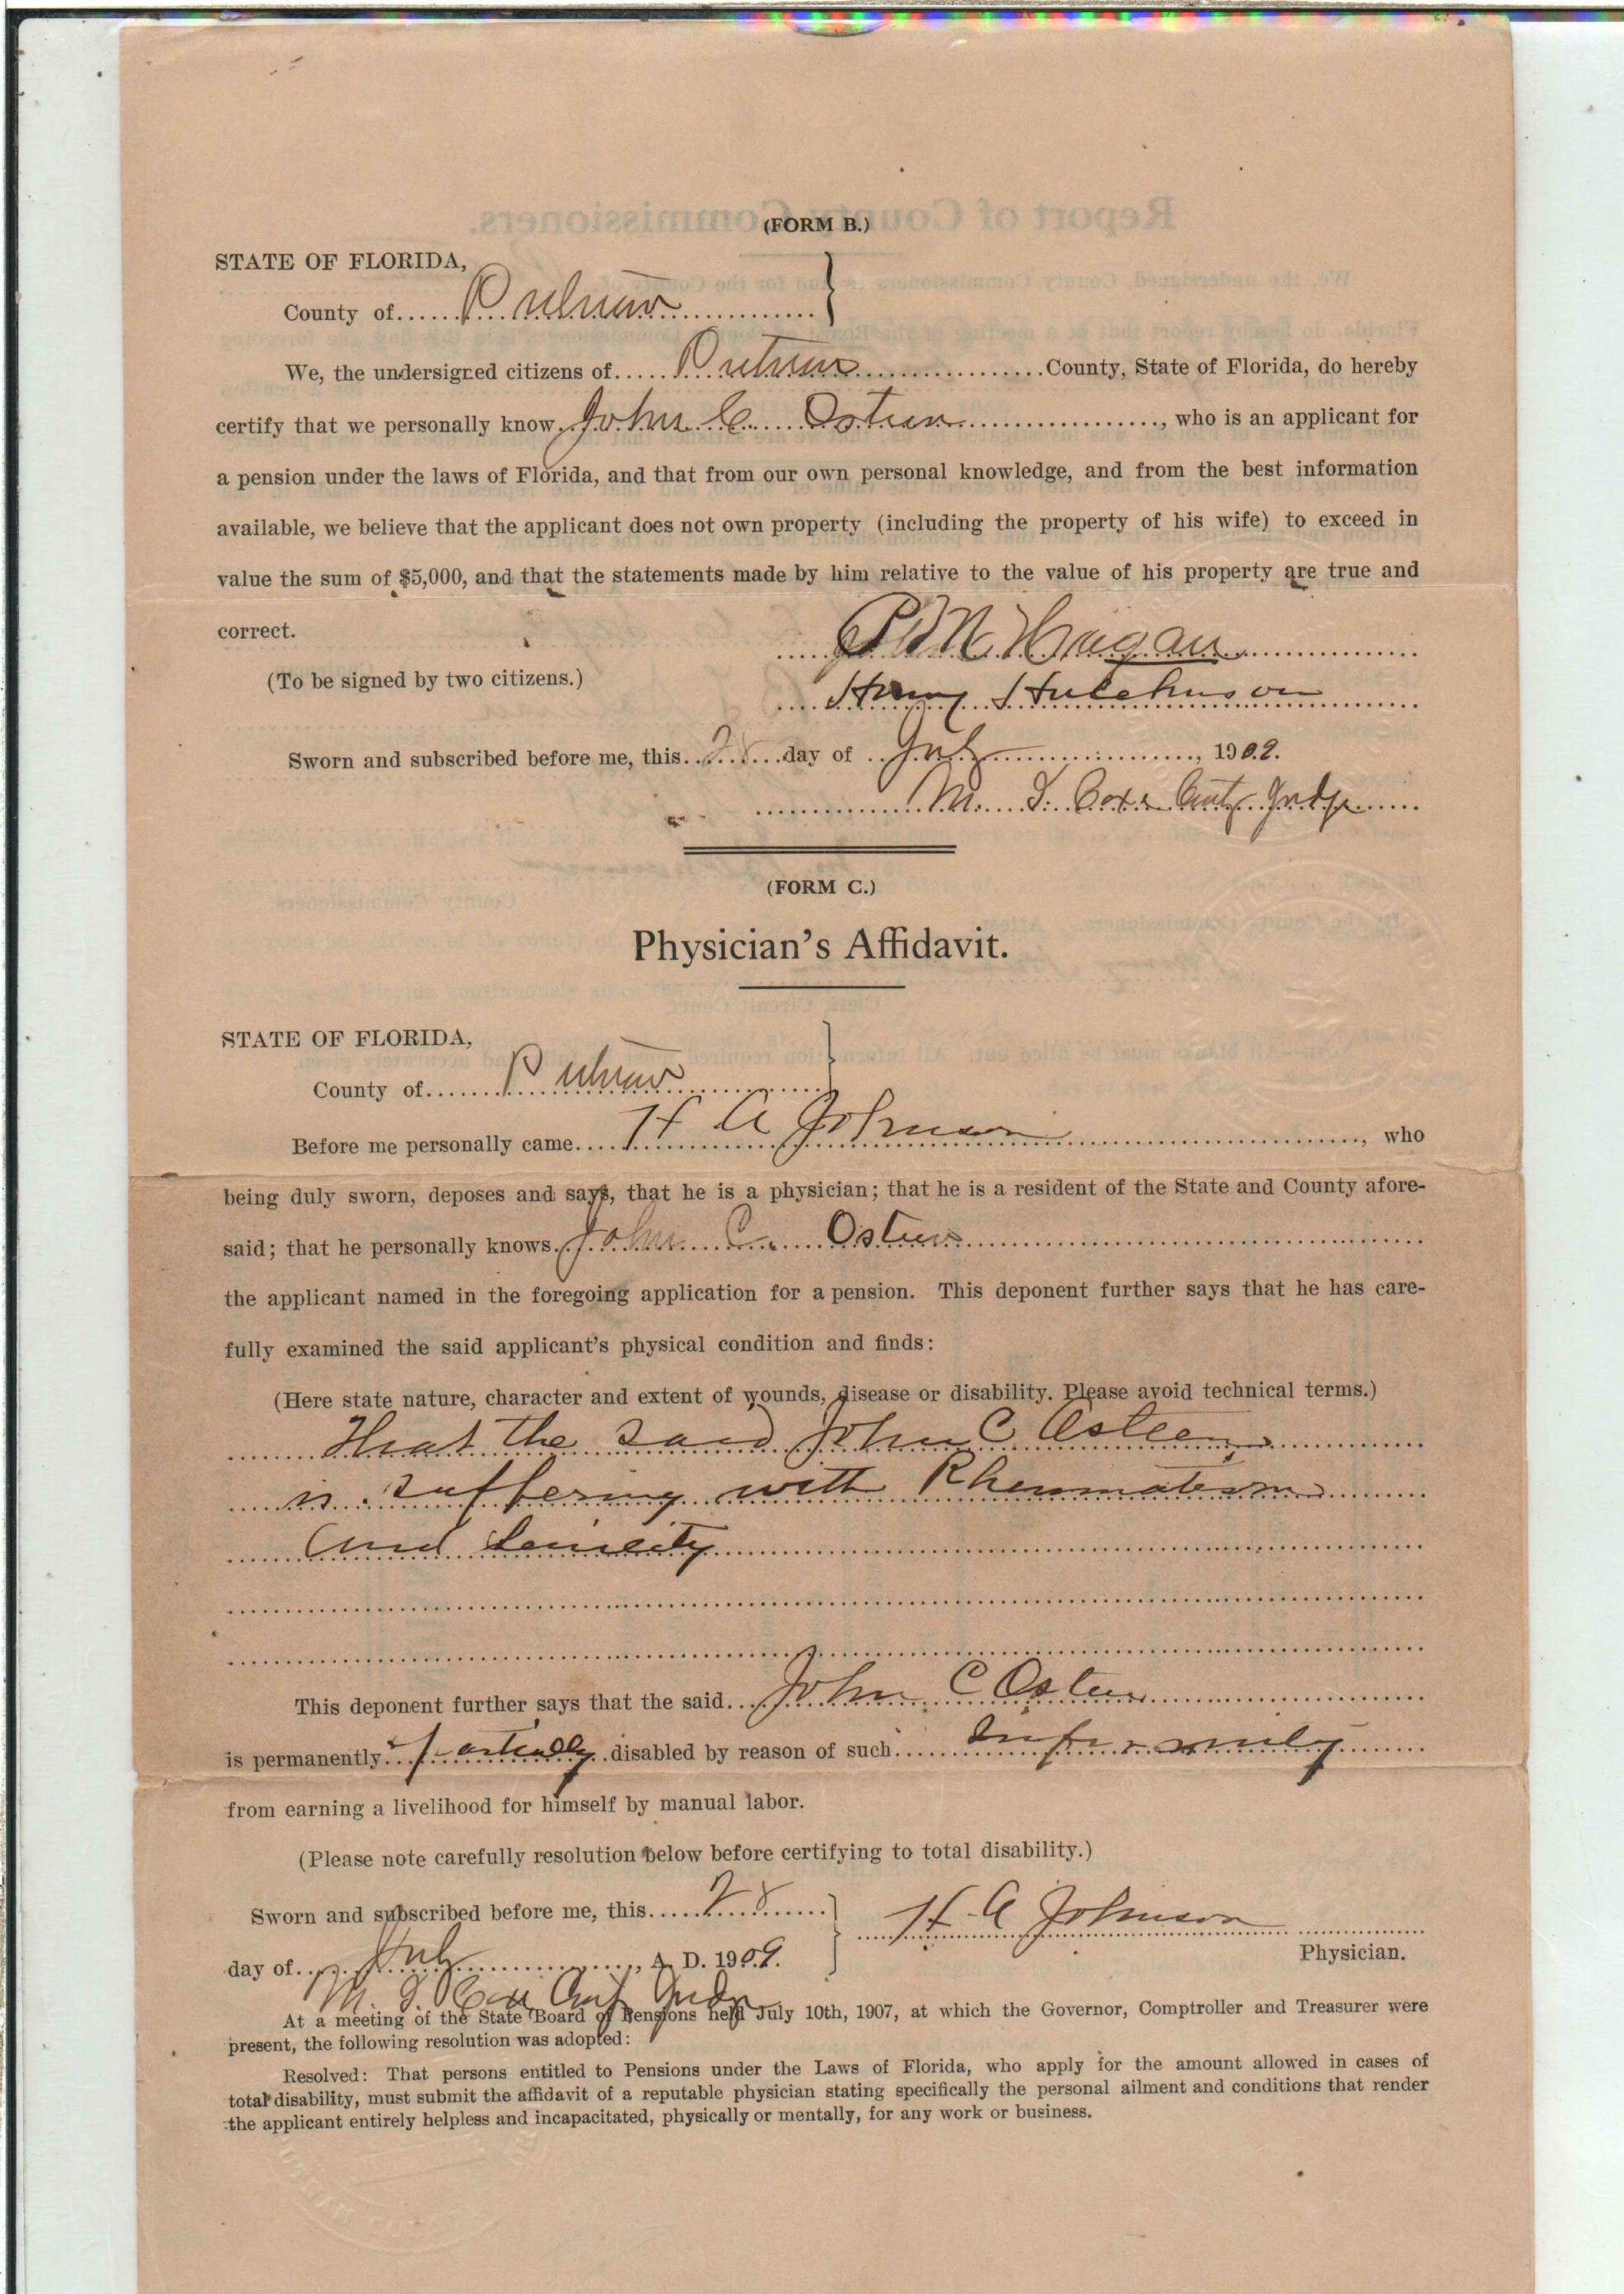 (FORM B.)
STATE OF FLORIDA,
County of Putnam
We, the undersigned citizens of Putnam County, State of Florida, do hereby
certify that we personally know John C Osteen, who is an applicant for
a pension under the laws of Florida, and that from our own personal knowledge, and from the best information
available, we believe that the applicant does not own property (including the property of his wife) to exceed in
value the sum of $5,000, and that the statements made by him relative to the value of his property are true and
correct.
Hagan
(To be signed by two citizens.)
Henry Hutchinson
Sworn and subscribed before me, this 28 day of July, 1909.
M. I. Coxe Cnty Judge
(FORM C.)
Physician's Affidavit.
STATE OF FLORIDA,
County of Putnam
Before me personally came H A Johnson, who
being duly sworn, deposes and says, that he is a physician; that he is a resident of the State and County afore-
said; that he personally knows John C. Osteen
the applicant named in the foregoing application for a pension. This deponent further says that he has care-
fully examined the said applicant's physical condition and finds:
(Here state nature, character and extent of wounds, disease or disability. Please avoid technical terms.)
That the said John C Osteen
is suffering with Rheumatism
and Senility
This deponent further says that the said John C Osteen
is permanently partially disabled by reason of such Infirmity
from earning a livelihood for himself by manual labor.
(Please note carefully resolution below before certifying to total disability.)
Sworn and subscribed before me, this 28
H A Johnson
day of July, A. D. 1909.
Physician.
M. I. Coxe Cnty Judge
At a meeting of the State Board of Pensions held July 10th, 1907, at which the Governor, Comptroller and Treasurer were
present, the following resolution was adopted:
Resolved: That persons entitled to Pensions under the Laws of Florida, who apply for the amount allowed in cases of
total disability, must submit the affidavit of a reputable physician stating specifically the personal ailment and conditions that render
the applicant entirely helpless and incapacitated, physically or mentally, for any work or business.